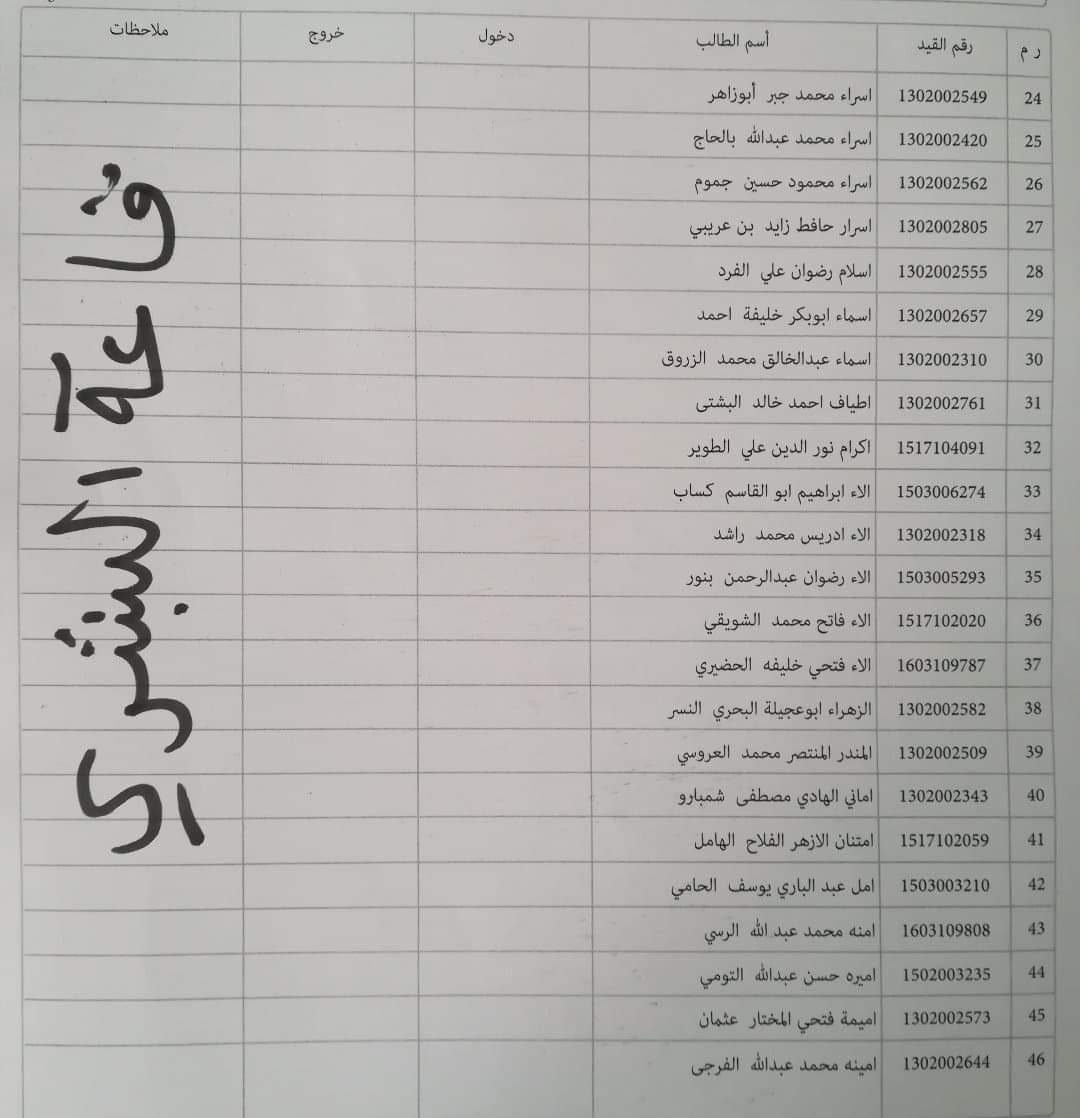 ر م رقم القيد أسم الطالب دخول خروج ملاحظات
24 1302002549 اسراء محمد جبر أبوزاهر
25 1302002420 اسراء محمد عبدالله بالحاج
26 1302002562 اسراء محمود حسين جموم
27 1302002805 اسرار حافظ زايد بن عريبي
28 1302002555 اسلام رضوان علي الفرد
29 1302002657 اسماء ابوبكر خليفة احمد
30 1302002310 اسماء عبدالخالق محمد الزروق
31 1302002761 اطياف احمد خالد البشتى
32 1517104091 اكرام نور الدين علي الطوير
33 1503006274 الاء ابراهيم ابو القاسم كساب
34 1302002318 الاء ادريس محمد راشد
35 1503005293 الاء رضوان عبدالرحمن بنور
36 1517102020 الاء فاتح محمد الشويقي
37 1603109787 الاء فتحي خليفه الحضيري
38 1302002582 الزهراء ابوعجيلة البحري النسر
39 1302002509 المندر المنتصر محمد العروسي
40 1302002343 اماني الهادي مصطفى شمبارو
41 1517102059 امتنان الازهر الفلاح الهامل
42 1503003210 امل عبد الباري يوسف الحامي
43 1603109808 امنه محمد عبد الله الرسي
44 1502003235 اميره حسن عبدالله التومي
45 1302002573 اميمة فتحي المختار عثمان
46 1302002644 امينه محمد عبدالله الفرجى
قاعة البشرى